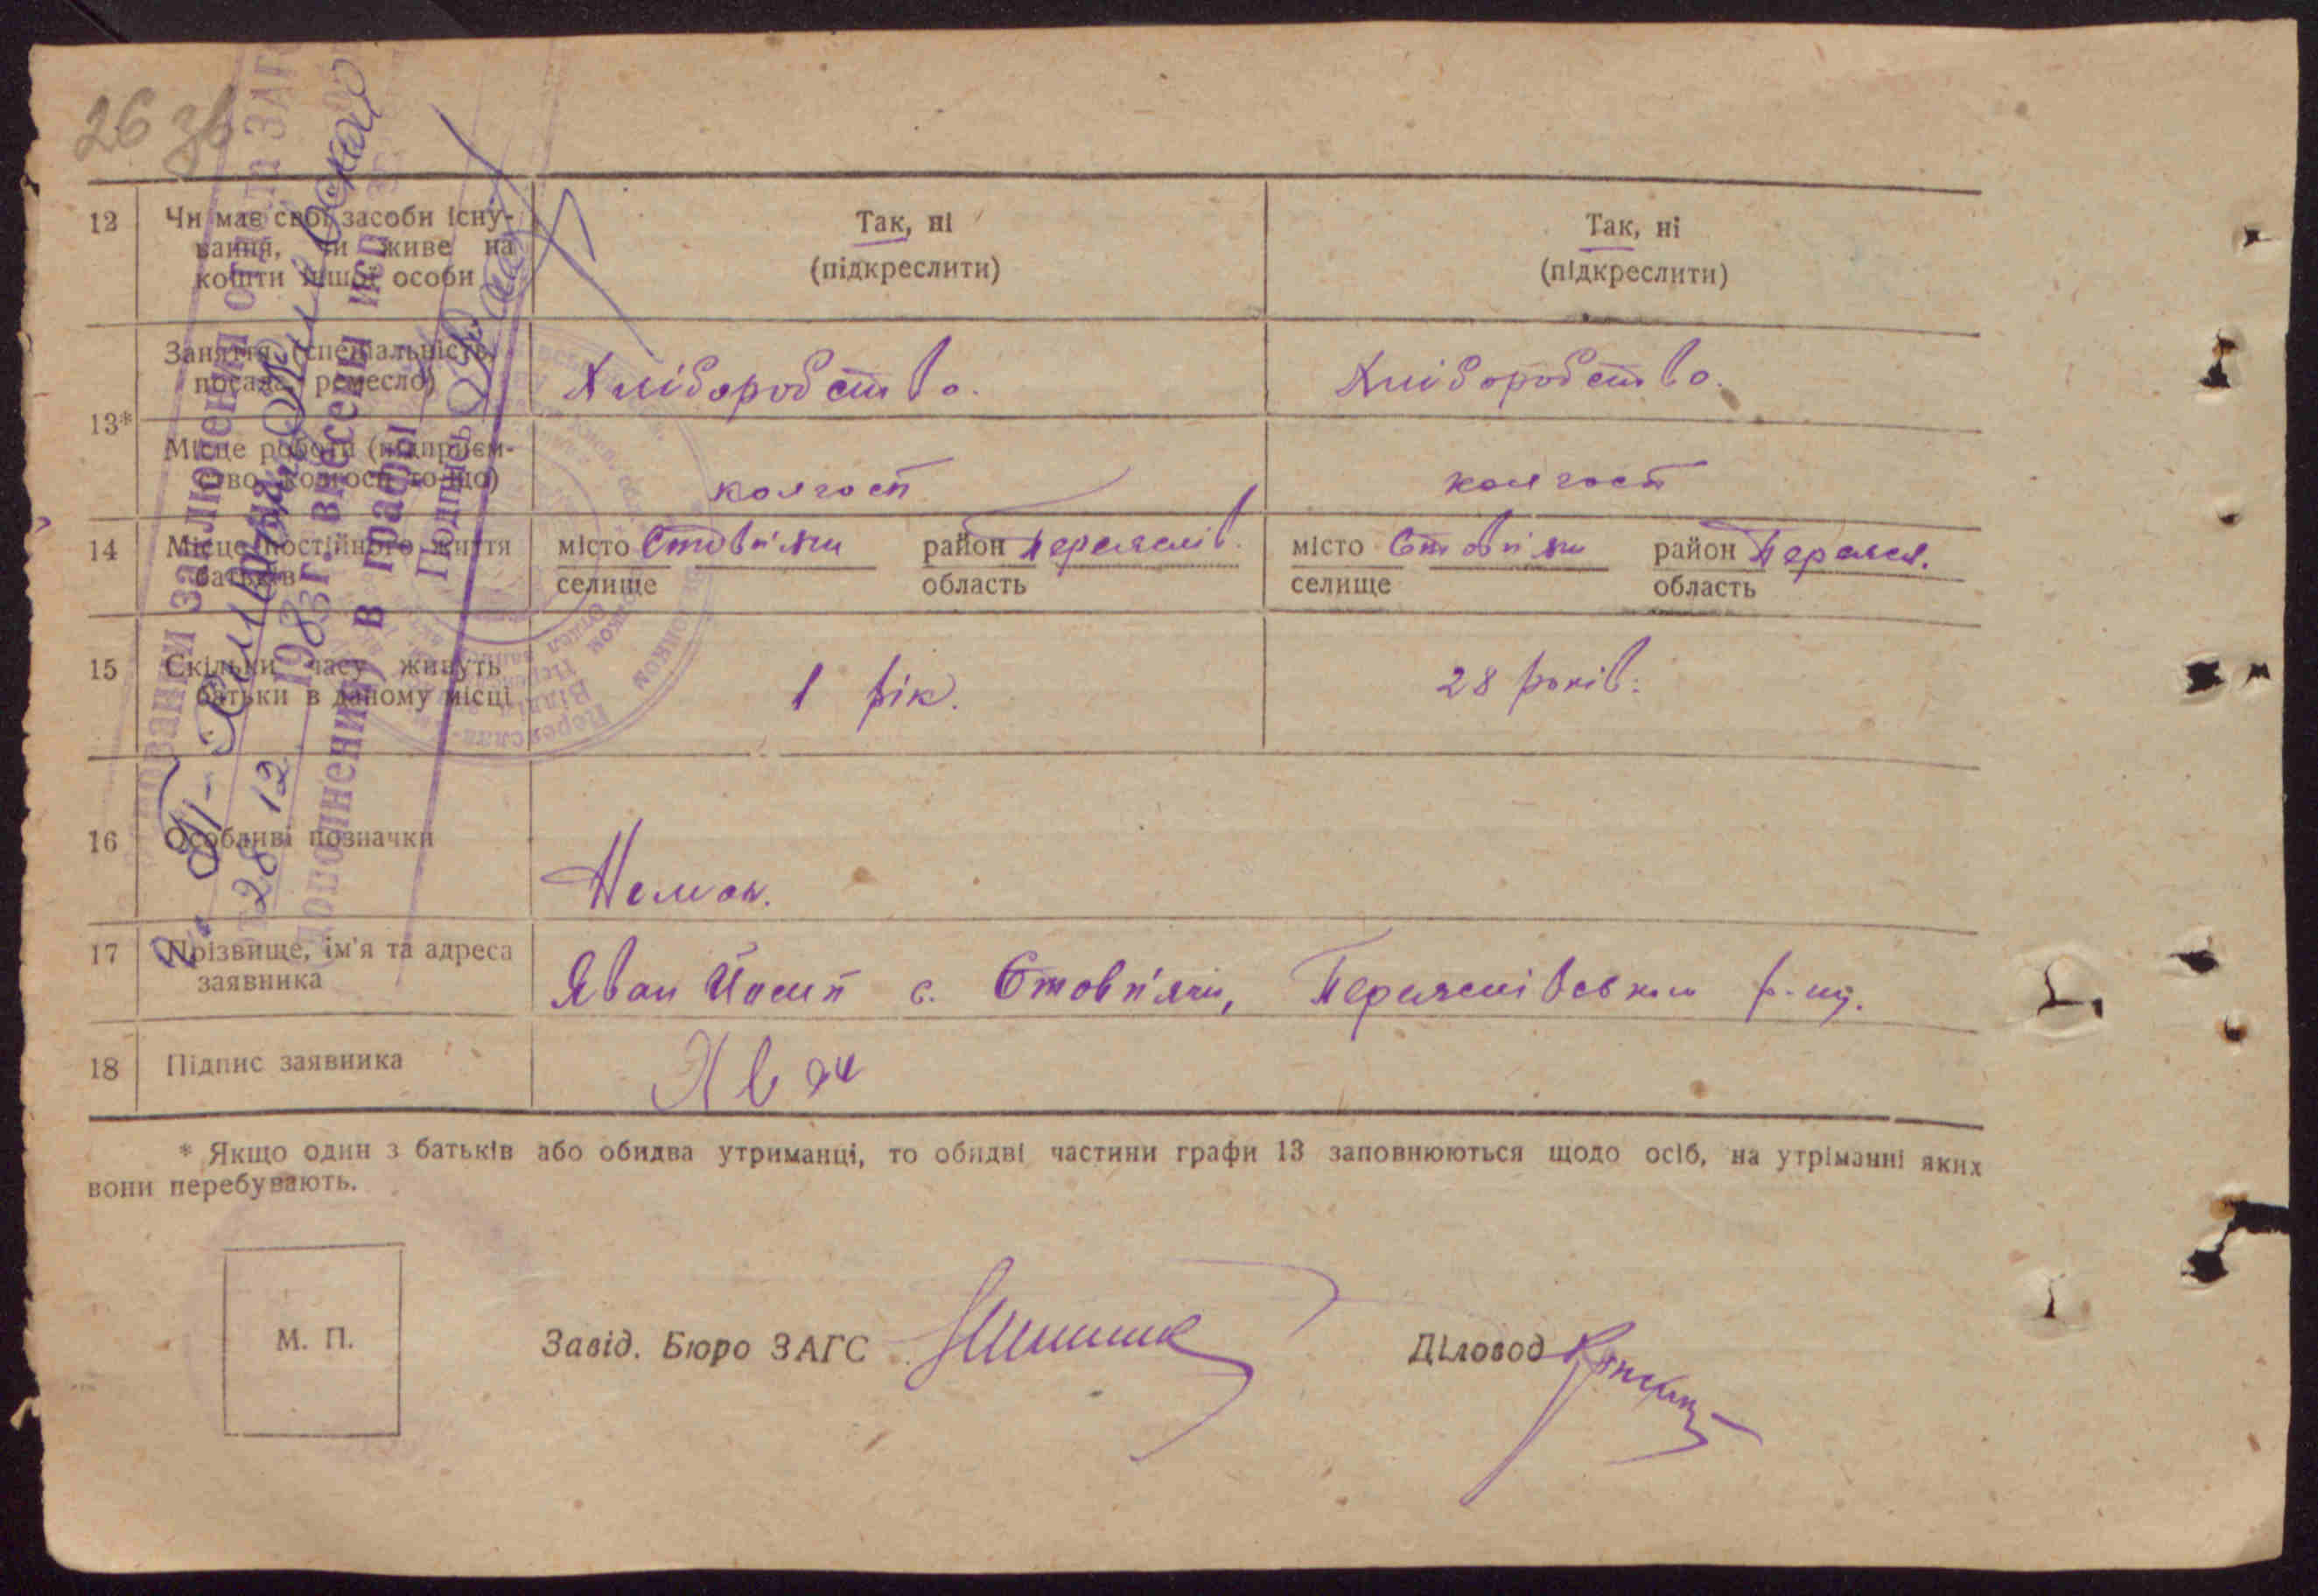 26 зв
12 Чи має свої засоби існу-
вання, чи живе на
кошти іншої особи
Так, ні
(підкреслити)
Так, ні
(підкреслити)
13*
Заняття (спеціальність,
посада, ремесло)
Хліборобство.
Хліборобство.
Місце роботи (підприєм-
ство, колгосп тощо)
колгосп
колгосп
14 Місце постійного життя
батьків
місто Стовп'яги район Переяслів.
селище область
місто Стовп'яги район Переясл.
селище область
15 Скільки часу живуть
батьки в даному місці
1 рік.
28 років.
16 Особливі позначки
Немає.
17 Прізвище, ім'я та адреса
заявника
Яван Йосип с. Стовп'яги, Переяслівського р-ну.
18 Підпис заявника
Яван
* Якщо один з батьків або обидва утриманці, то обидві частини графи 13 заповнюються щодо осіб, на утріманні яких
вони перебувають.
М. П.
Завід. Бюро ЗАГС
Діловод
заключения отдела ЗАГС
28 12 1983 г. внесены
в графы
Подпись